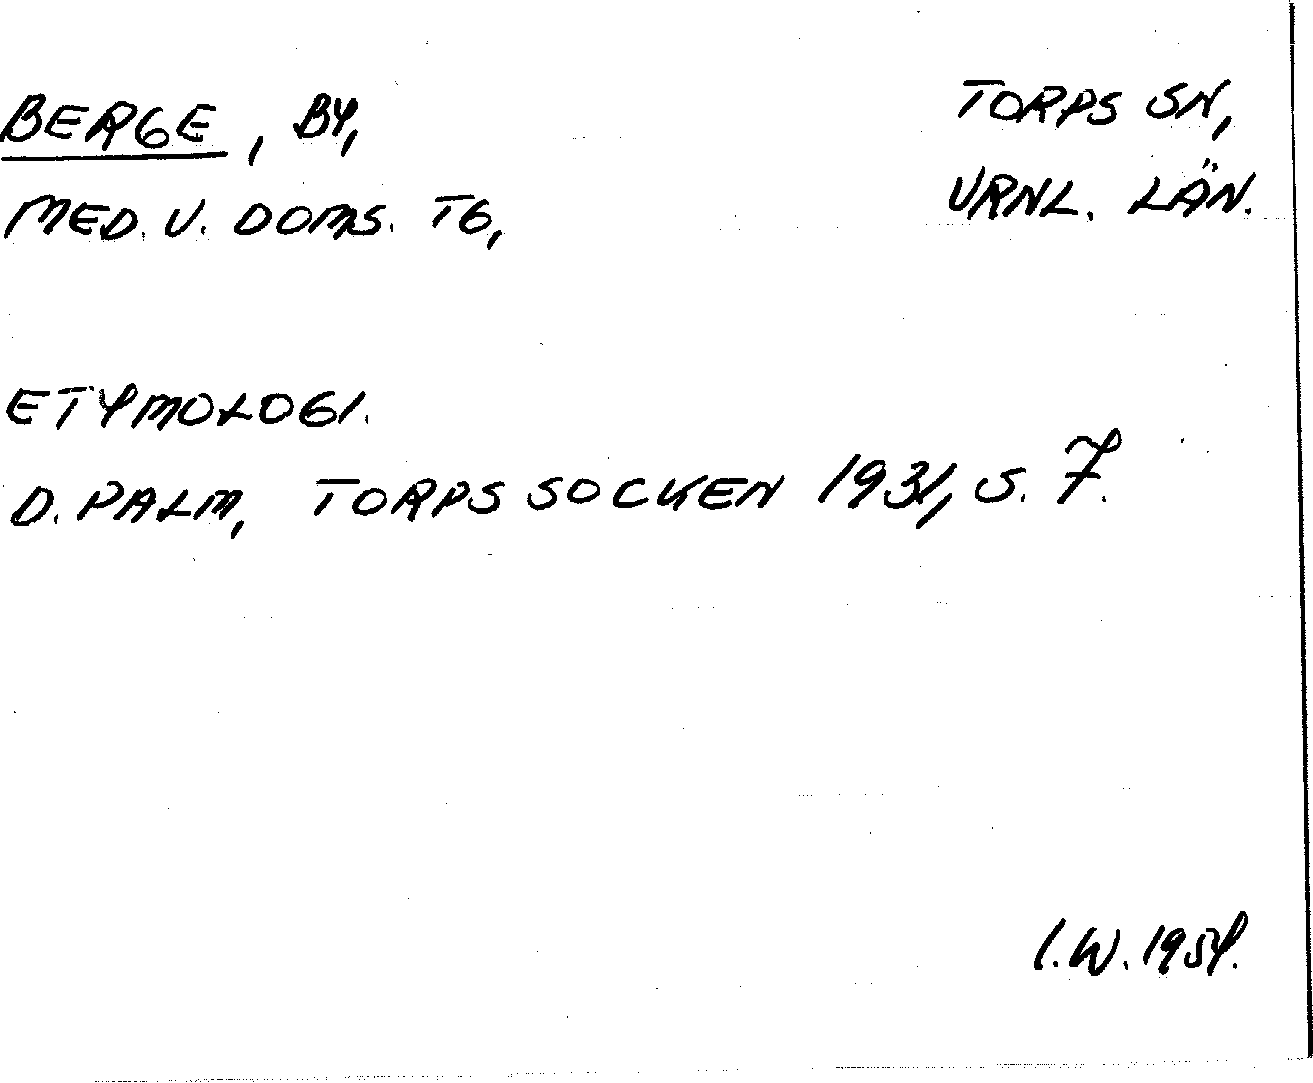 BERGE, BY,
MED. V. DOMS. TG,
TORPS SN,
VRNL. LÄN.
ETYMOLOGI.
D. PALM, TORPS SOCKEN 1931, S. 7.
I.W. 1954.